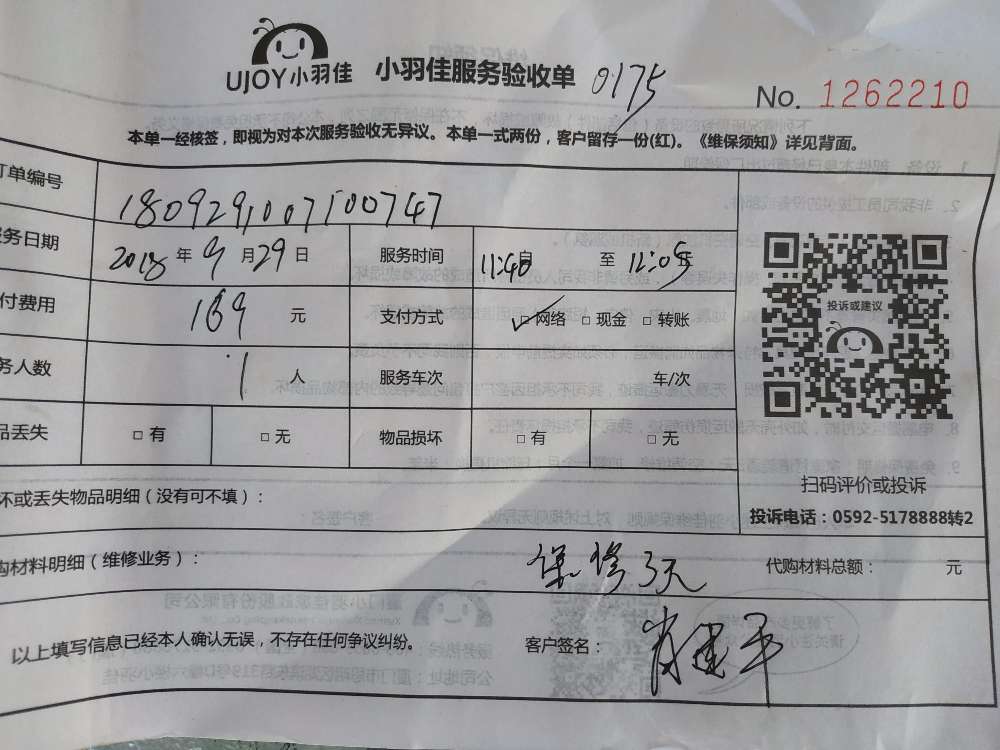 UJOY小羽佳 小羽佳服务验收单 0175
No. 1262210
本单一经核签，即视为对本次服务验收无异议。本单一式两份，客户留存一份(红)。《维保须知》详见背面。
订单编号 1809291007100747
务日期 2018 年 9 月 29 日 服务时间 11:40 至 12:05
付费用 169 元 支付方式 ✓□网络 □现金 □转账
务人数 1 人 服务车次 车/次
品丢失 □有 □无 物品损坏 □有 □无
投诉或建议
扫码评价或投诉
投诉电话：0592-5178888转2
坏或丢失物品明细（没有可不填）：
购材料明细（维修业务）： 保修3天 代购材料总额： 元
以上填写信息已经本人确认无误，不存在任何争议纠纷。 客户签名： 肖建平